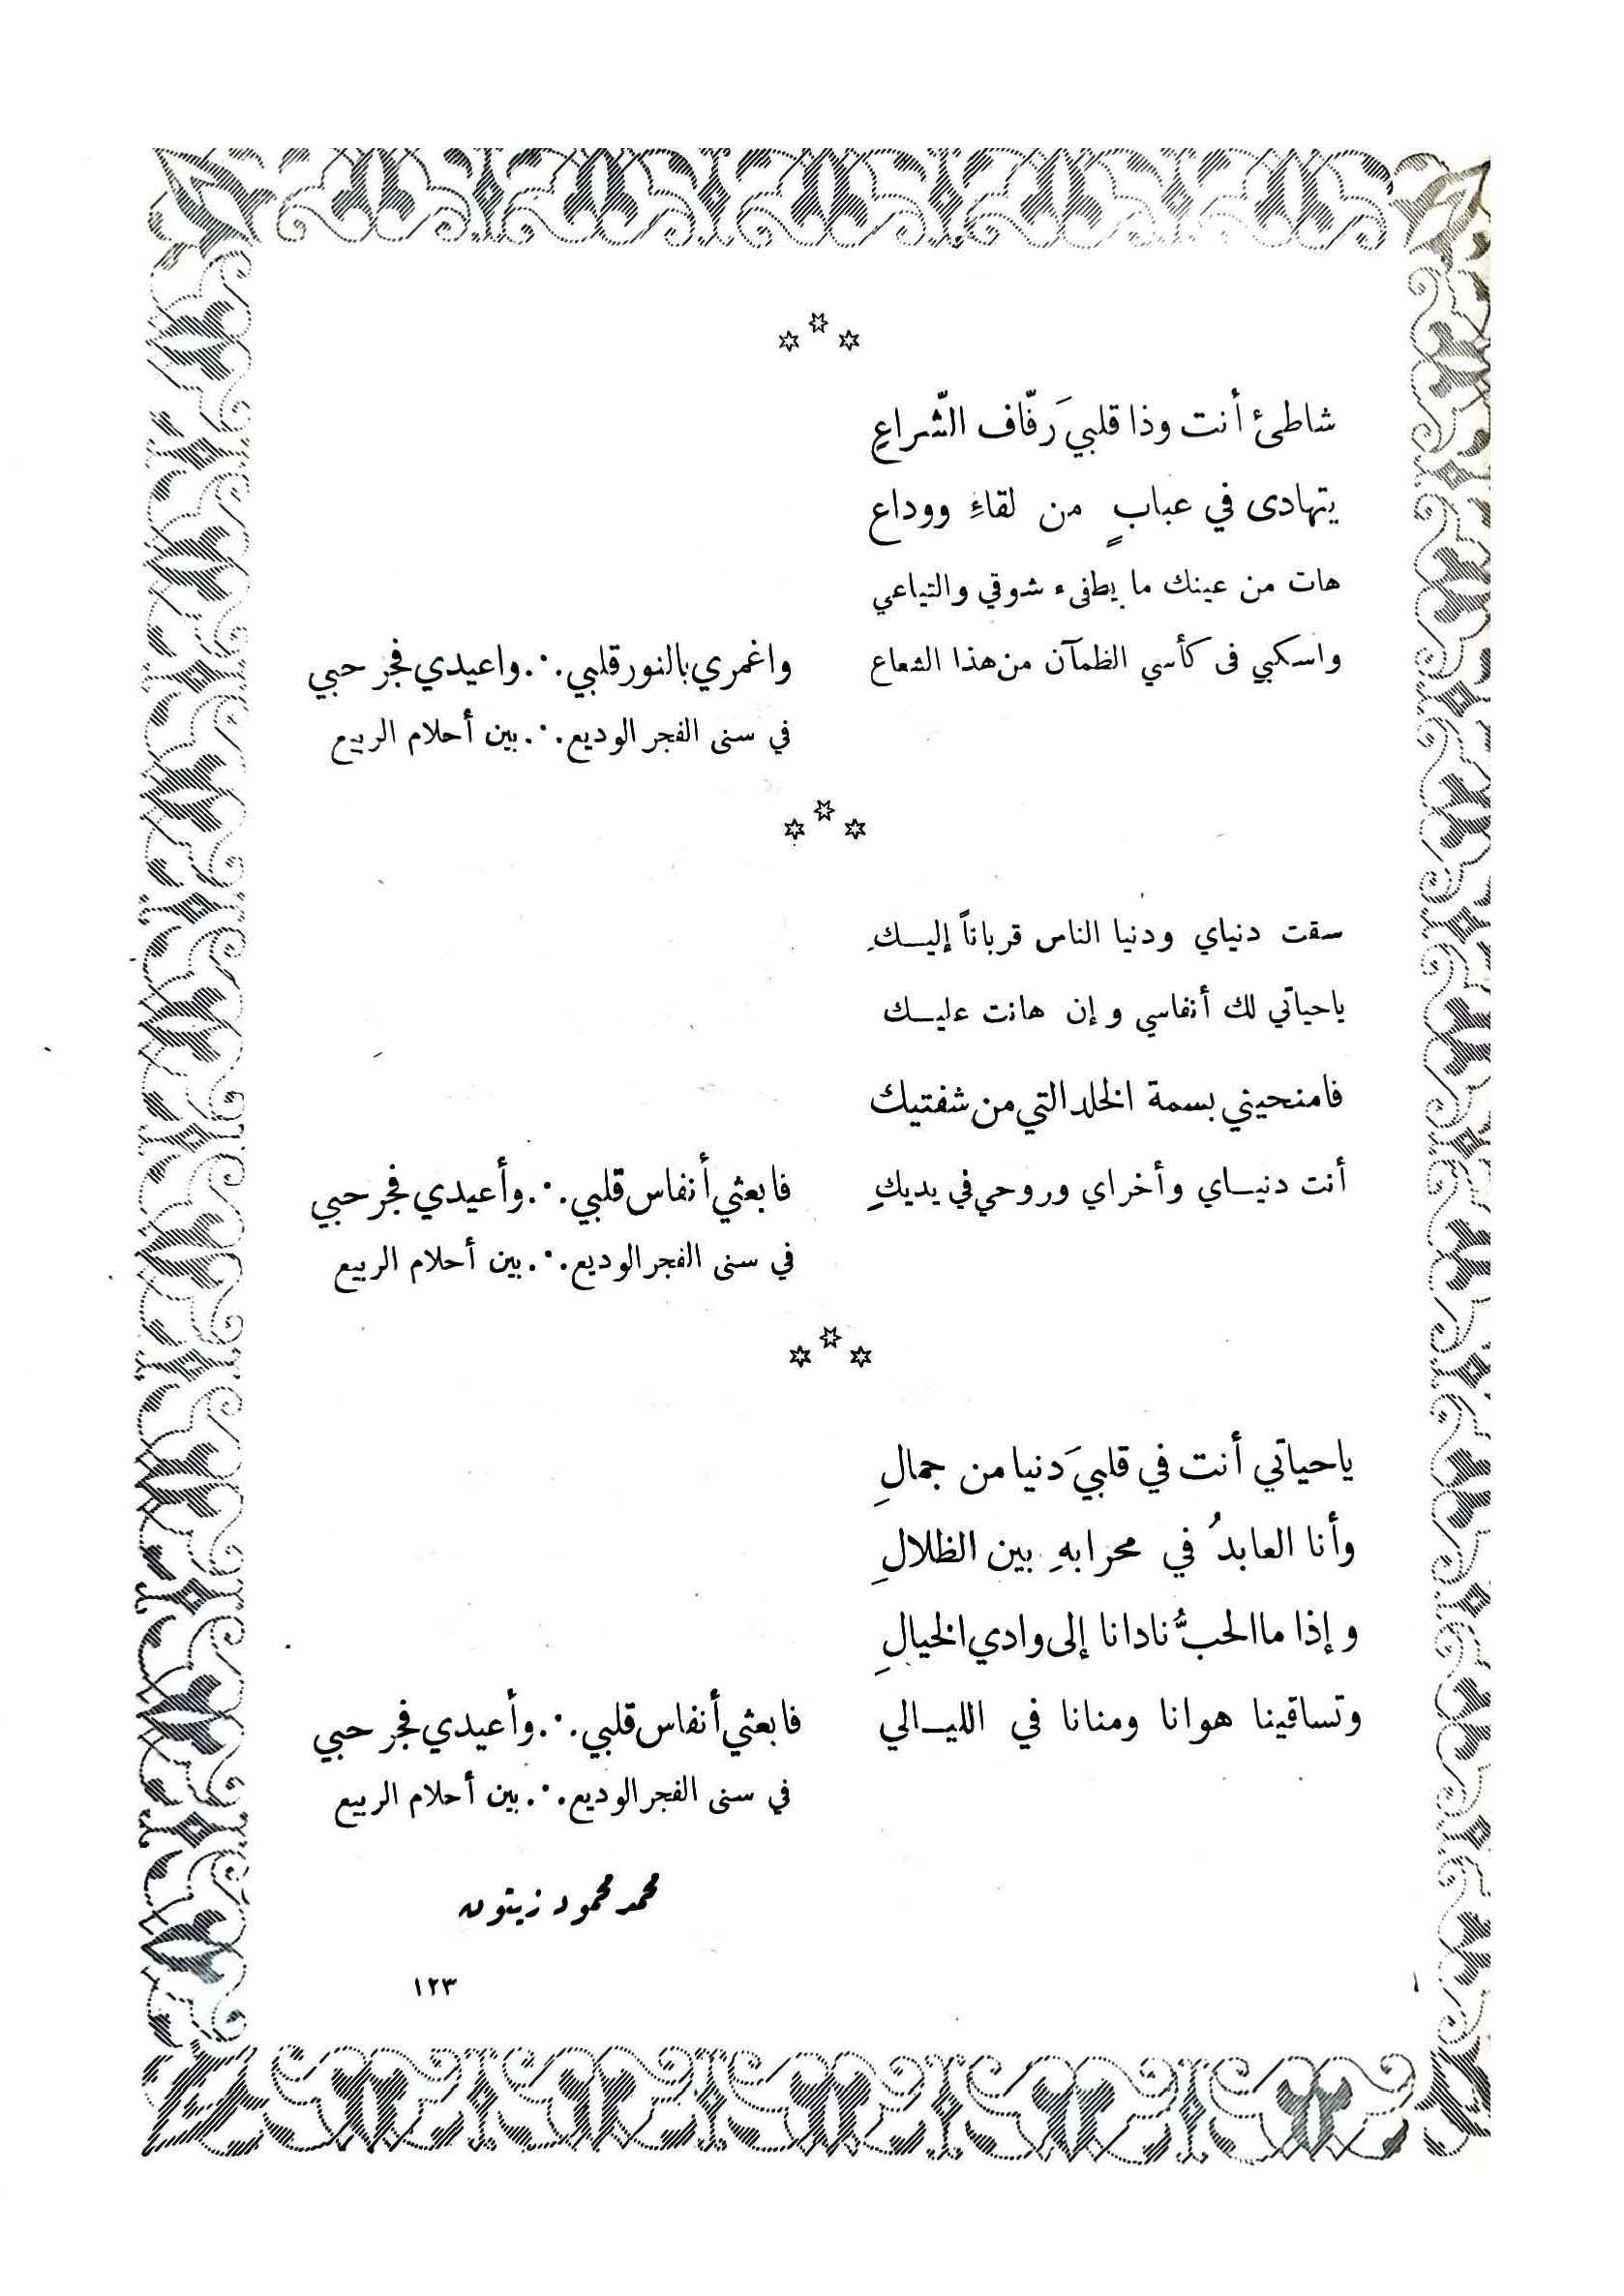 شاطئ أنت وذا قلبيَ رفّاف الشّراعِ
يتهادى في عبابٍ من لقاءِ ووداع
هات من عينك ما يطفىء شوقي والتياعي
واسكبي فى كأسي الظمآن من هذا الشعاع
واغمري بالنور قلبي .·. واعيدي فجر حبي
في سنى الفجر الوديع .·. بين أحلام الربيع
سقت دنياي ودنيا الناس قرباناً إليـك
ياحياتي لك أنفاسي وإن هانت عليـك
فامنحيني بسمة الخلد التي من شفتيك
أنت دنيـاي وأخراي وروحي في يديكِ
فابعثي أنفاس قلبي .·. وأعيدي فجر حبي
في سنى الفجر الوديع .·. بين أحلام الربيع
ياحياتي أنت في قلبيَ دنيا من جمالِ
وأنا العابدُ في محرابهِ بين الظلالِ
وإذا ما الحبُّ نادانا إلى وادي الخيالِ
وتساقينا هوانا ومنانا في الليـالي
فابعثي أنفاس قلبي .·. وأعيدي فجر حبي
في سنى الفجر الوديع .·. بين أحلام الربيع
محمد محمود زيتون
١٢٣